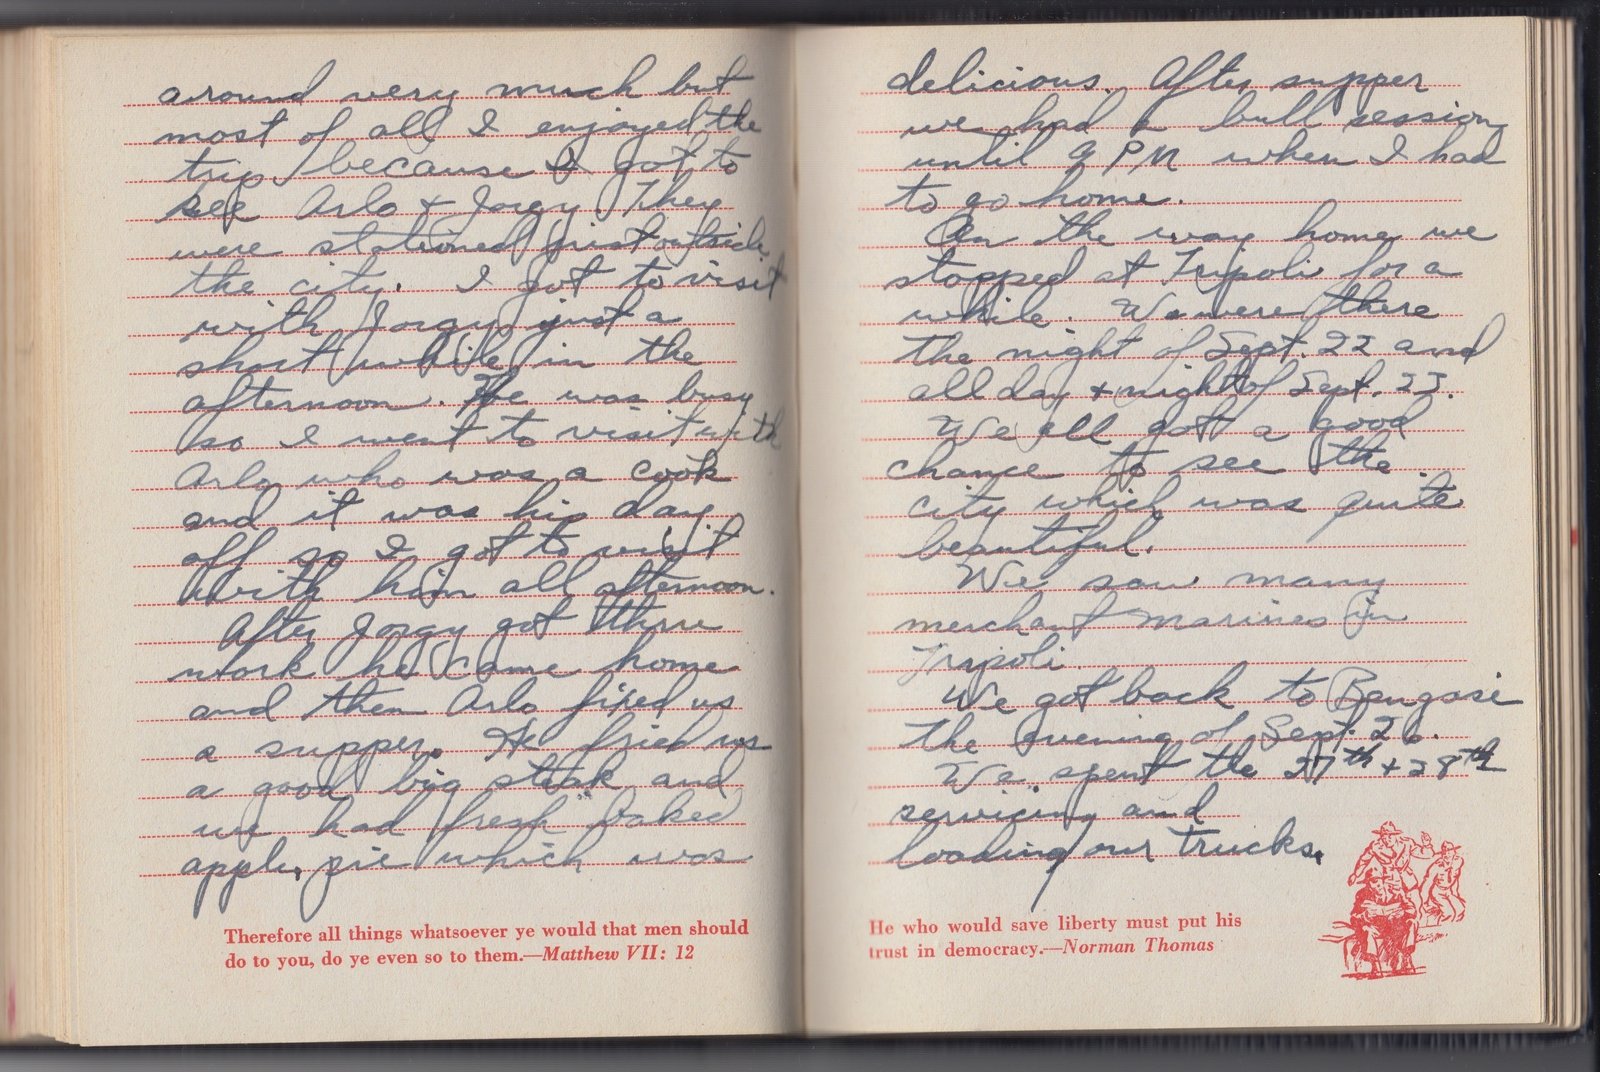 around very much but
most of all I enjoyed the
trip because I got to
see Arlo & Jorgy. They
were stationed just outside
the city. I got to visit
with Jorgy just a
short while in the
afternoon. He was busy
so I went to visit with
Arlo who was a cook
and it was his day
off so I got to visit
with him all afternoon.
After Jorgy got thru
work he came home
and then Arlo fixed us
a supper. He fried us
a good big steak and
we had fresh baked
apple pie which was
Therefore all things whatsoever ye would that men should
do to you, do ye even so to them.—Matthew VII: 12
delicious. After supper
we had a bull session
until 9 PM when I had
to go home.
On the way home we
stopped at Tripoli for a
while. We were there
the night of Sept. 22 and
all day & night of Sept. 23.
We all got a good
chance to see the
city which was quite
beautiful.
We saw many
merchant marines in
Tripoli.
We got back to Bengasi
the evening of Sept. 26.
We spent the 27th & 28th
servicing and
loading our trucks.
He who would save liberty must put his
trust in democracy.—Norman Thomas